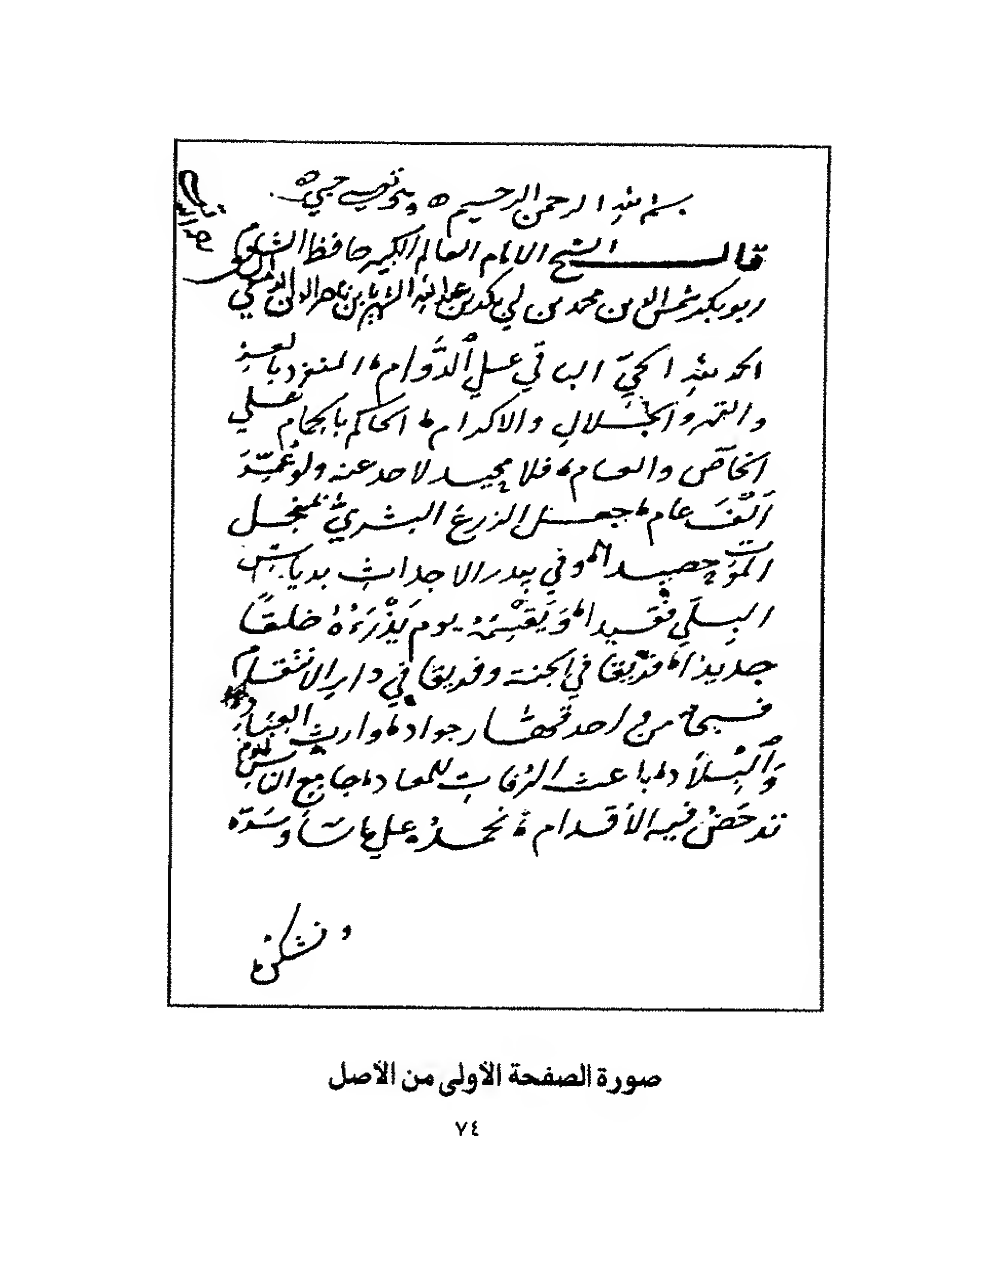 بسم الله الرحمن الرحيم ه وبه توفيقي حسبي
قال الشيخ الامام العالم الكبير حافظ الشام
ابو بكر شمس الدين محمد بن ابي بكر بن عبد الله الشهير بابن ناصر الدين الدمشقي
الحمد لله الحيّ الباقي على الدَّوام المنفرد بالعز
والقهر والجلال والاكرام الحاكم بالحمام على
الخاصّ والعام فلا محيد لاحد عنه ولو عُمِّرَ
اَلْفَ عام جعل الزرع البشريَّ بمنجل
المَوت حصيدا وفي بيدر الاجداث بدياس
البِلَى فقيدا وَيَقْسِمُه يوم يَذْرَءُهُ خلقًا
جديدا فريقا في الجنة وفريقا في دار الانتقام
فسبحان من احد قهار جواد وارث العباد
وَالْبِلاَد باعث الرُفات للمعاد جامع الناس ليوم
تدحَضُ فيه الأقدام نحمدُه على ما سَاءَ وسَرَّ
ونشكره
صورة الصفحة الأولى من الأصل
٧٤